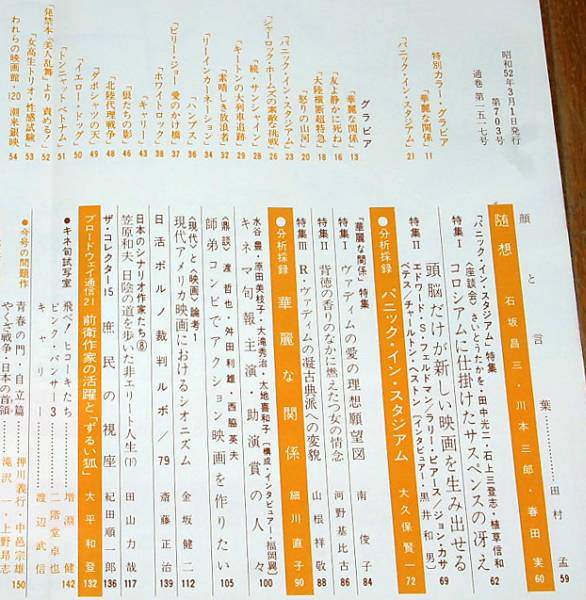 昭和52年3月1日発行
第703号
通巻 第一五一七号
特別カラー・グラビア
「華麗な関係」11
「パニック・イン・スタジアム」21
グラビア
「華麗な関係」13
「友よ静かに死ね」16
「大陸横断超特急」18
「怒りの山河」20
「パニック・イン・スタジアム」23
「シャーロック・ホームズの素敵な挑戦」26
「続・サンシャイン」28
「キートンの大列車追跡」29
「素晴しき放浪者」32
「リーインカーネーション」34
「ハンガス」36
「ビリー・ジョー 愛のかけ橋」37
「ホワイトロック」38
「キャリー」43
「狼たちの影」46
「北陸代理戦争」48
「ダボシャツの天」49
「イエロー・ドッグ」50
「トンニャット ベトナム」51
「発禁本「美人乱舞」より 責める!」52
「女高生トリオ・性感試験」53
われらの映画館 120 潮来銀映 54
顔と言葉 田村 孟 59
随想 石坂昌三・川本三郎・春田 実 60
「パニック・イン・スタジアム」特集
〈座談会〉さいとうたかを・田中光二・石上三登志・植草信和
特集Ⅰ コロシアムに仕掛けたサスペンスの冴え 62
頭脳だけが新しい映画を生み出せる
特集Ⅱ エドワード・S・フェルドマン/ラリー・ピアース/ジョン・カサベテス/チャールトン・ヘストン〔インタビュアー・黒井和男〕69
●分析採録 パニック・イン・スタジアム 大久保賢一 72
「華麗な関係」特集
特集Ⅰ ヴァディムの愛の理想願望図 南 俊子 84
特集Ⅱ 背徳の香りのなかに燃えたつ女の情念 河野基比古 86
特集Ⅲ R・ヴァディムの擬古典派への変貌 山根祥敬 88
●分析採録 華麗な関係 細川直子 90
水谷豊・原田美枝子・大滝秀治・太地喜和子〔構成・インタビュアー・福岡翼〕
キネマ旬報主演・助演賞の人々 100
〈鼎談〉渡 哲也・舛田利雄・西脇英夫
師弟コンビでアクション映画を作りたい 105
〈現代〉と〈映画〉論考1
現代アメリカ映画におけるシオニズム 金坂健二 112
日活ポルノ裁判ルポ/79 斎藤正治 139
日本のシナリオ作家たち⑧
笠原和夫・日陰の道を歩いた非エリート人生(下) 田山力哉 117
ザ・コレクター15 庶民の視座 紀田順一郎 136
ブロードウェイ通信21 前衛作家の活躍と「ずるい狐」 大平和登 132
●キネ旬試写室
飛べ!ヒコーキたち 増淵 健 142
ピンク・パンサー3 二階堂卓也
キャリー 渡辺武信
●今号の問題作
青春の門・自立篇 押川義行・中邑宗雄 150
やくざ戦争・日本の首領 滝沢 一・上野昻志